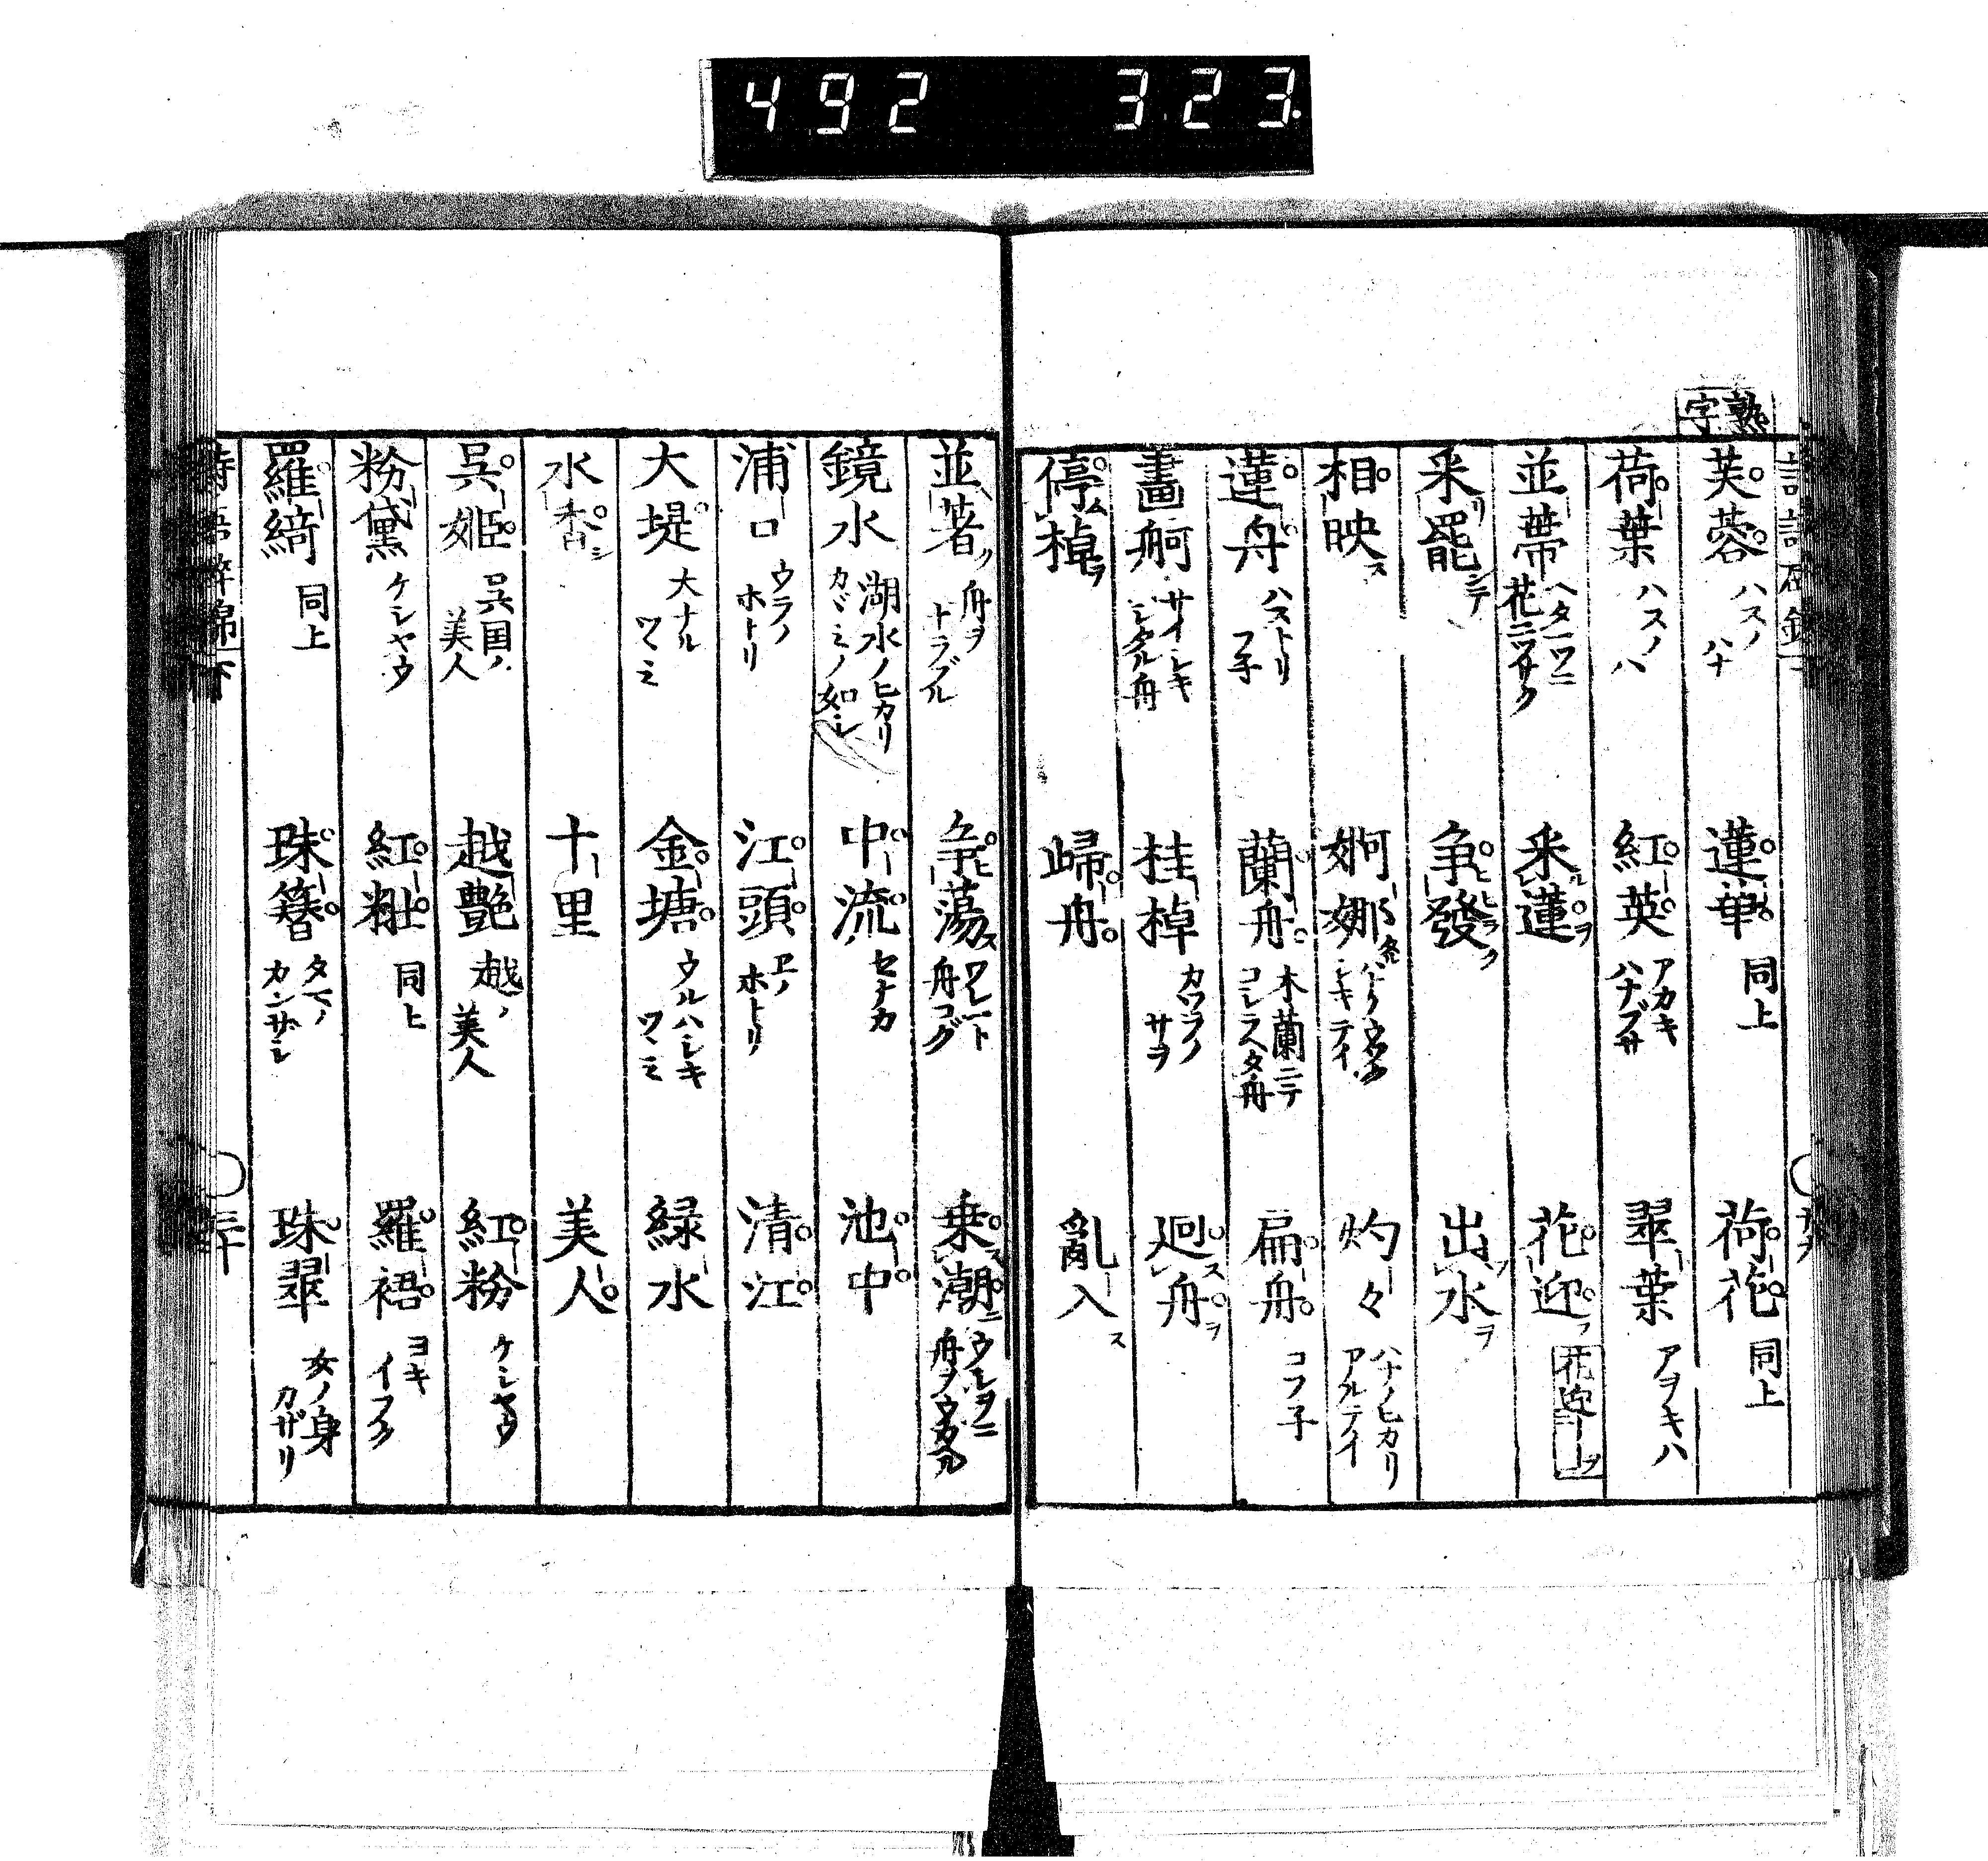 492 323.
熟字
芙蓉 ハスノハナ 蓮華 同上 荷花 同上
荷葉 ハスノハ 紅英 アカキハナブサ 翠葉 アヲキハ
並蔕 ヘタ一ツニ花二ツサク 采蓮ヲ 花迎フ
采リ罷シテ 争ヒ發ラク 出水ヲ
相映ス 婀娜 灼々 ハナノヒカリアルテイ
蓮舟 ハストリフ子 蘭舟 木蘭ニテコシラヘタ舟 扁舟 コフ子
畫舸 サイシキシタル舟 桂棹 カツラノサヲ 廻ス舟ヲ
停ム棹ヲ 歸舟 亂入ス
並著ク 舟ヲナラブル 争ヒ蕩ス ワレ一ト舟コグ 乗ス潮ニ ウシヲニ舟ヲウカブル
鏡水 湖水ノヒカリカヾミノ如シ 中流 セナカ 池中
浦口 ウラノホトリ 江頭 エノホトリ 清江
大堤 大ナルツヽミ 金塘 ウルハシキツヽミ 緑水
水香シ 十里 美人
呉姬 呉国ノ美人 越艶 越ノ美人 紅粉 ケシヤウ
粉黛 ケシヤウ 紅粧 同上 羅裙 ヨキイフク
羅綺 同上 珠簪 タマノカンザシ 珠翠 女ノ身カザリ
詩語碎錦 下 三十